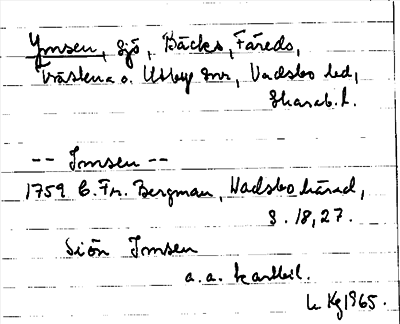 Ymsen, sjö, Bäcks, Färeds,
Trästena o. Utby snr, Vadsbo hd,
Skarab. l.
-- Imsen --
1759 C. Fr. Bergman, Wadsbo härad,
S. 18, 27.
Siön Imsen
a.a. kartbil.
Kg 1965.